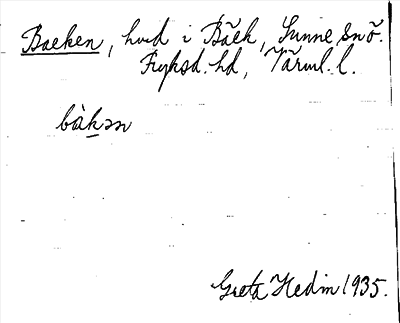 Backen, hmd i Bäck, Sunne snö.
Fryksd. hd, Värml. l.
bàkən
Greta Hedin 1935.